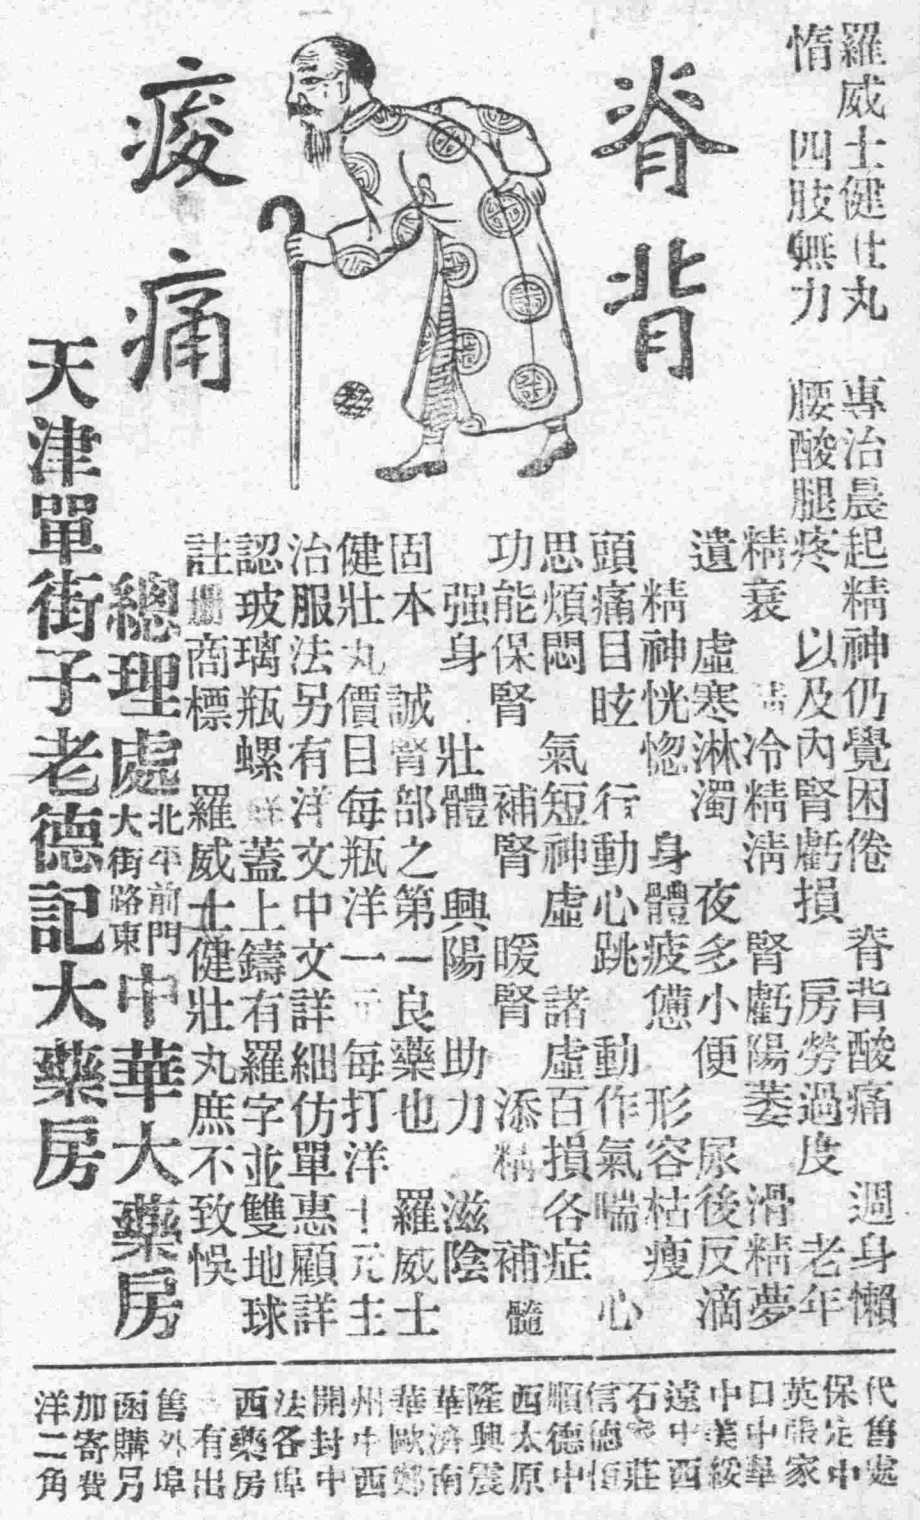 脊背
痠痛
羅威士健壯丸　專治晨起精神仍覺困倦　脊背酸痛　週身懶
惰　四肢無力　腰酸腿疼　以及內腎虧損　房勞過度　老年
精衰　冷精清　腎虧陽萎　滑精夢
遺　虛寒淋濁　夜多小便　尿後反滴
精神恍惚　身體疲憊　形容枯瘦
頭痛目眩　行動心跳　動作氣喘　心
思煩悶　氣短神虛　諸虛百損各症
功能保腎　補腎　暖腎　添精　補髓
强身　壯體　興陽　助力　滋陰
固本　誠腎部之第一良藥也　羅威士
健壯丸價目每瓶洋一元　每打洋十元主
治服法另有洋文中文詳細仿單惠顧詳
認玻璃瓶螺絲蓋上鑄有羅字並雙地球
註冊商標　羅威士健壯丸庶不致悞
總理處
北平前門
大街路東
中華大藥房
天津單街子老德記大藥房
代售處
保定中
英張家
口中華
中美綏
遠中西
石家莊
信德恒
順德中
西太原
隆興震
華濟南
華歐鄭
州中西
開封中
法各埠
西藥房
有出
售外埠
函購另
加寄費
洋二角